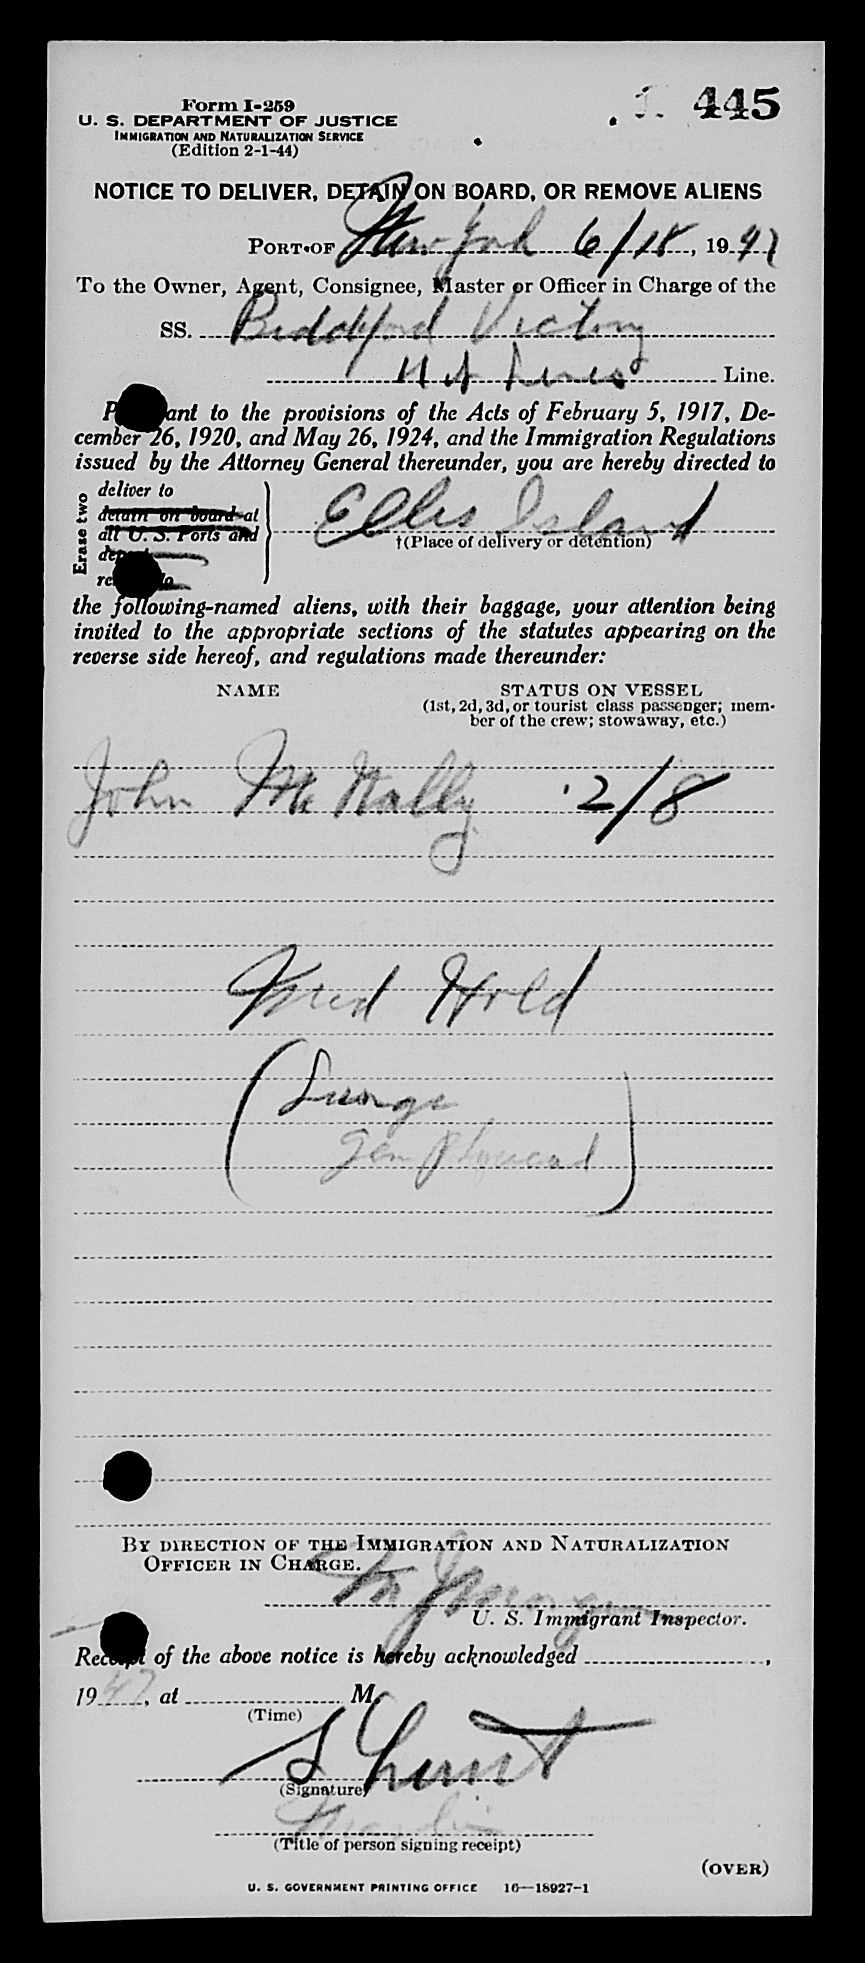 Form I-259
445
U. S. DEPARTMENT OF JUSTICE
IMMIGRATION AND NATURALIZATION SERVICE
(Edition 2-1-44)
NOTICE TO DELIVER, DETAIN ON BOARD, OR REMOVE ALIENS
PORT OF New York 6/18, 1947
To the Owner, Agent, Consignee, Master or Officer in Charge of the
SS. Biddeford Victory
Lines Line.
ant to the provisions of the Acts of February 5, 1917, De-
cember 26, 1920, and May 26, 1924, and the Immigration Regulations
issued by the Attorney General thereunder, you are hereby directed to
Erase two
deliver to
detain on board at
all U. S. Ports and
Ellis Island
†(Place of delivery or detention)
the following-named aliens, with their baggage, your attention being
invited to the appropriate sections of the statutes appearing on the
reverse side hereof, and regulations made thereunder:
NAME STATUS ON VESSEL
(1st, 2d, 3d, or tourist class passenger; mem-
ber of the crew; stowaway, etc.)
John McNally 2/8
Med Hold
(
Gen Physical )
BY DIRECTION OF THE IMMIGRATION AND NATURALIZATION
OFFICER IN CHARGE.
U. S. Immigrant Inspector.
Receipt of the above notice is hereby acknowledged ,
1947, at M.
(Time)
(Signature)
(Title of person signing receipt)
(OVER)
U. S. GOVERNMENT PRINTING OFFICE 16—18927-1